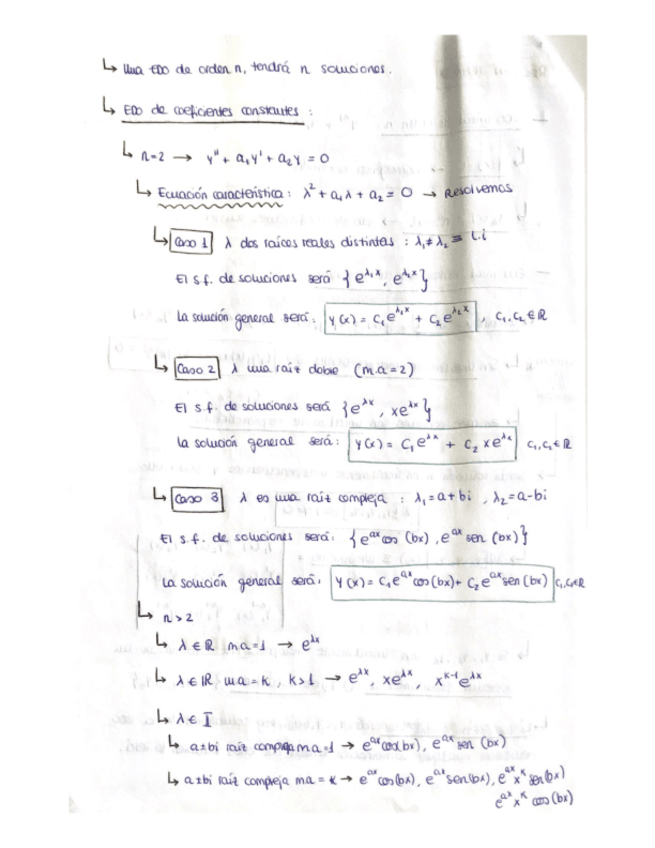 ↳ Una EDO de orden n, tendrá n soluciones.
↳ EDO de coeficientes constantes:
↳ n=2 → y'' + a₁y' + a₂y = 0
↳ Ecuación característica: λ² + a₁λ + a₂ = 0 → Resolvemos
↳ Caso 1 λ dos raíces reales distintas : λ₁ ≠ λ₂ ≡ l.i
El s.f. de soluciones será {e^{λ₁x}, e^{λ₂x}}
La solución general será: y(x) = C₁e^{λ₁x} + C₂e^{λ₂x}, C₁,C₂ ∈ ℝ
↳ Caso 2 λ una raíz doble (m.a=2)
El s.f. de soluciones será {e^{λx}, xe^{λx}}
La solución general será: y(x) = C₁e^{λx} + C₂xe^{λx} C₁,C₂ ∈ ℝ
↳ Caso 3 λ es una raíz compleja : λ₁=a+bi , λ₂=a-bi
El s.f. de soluciones será: {e^{ax}cos (bx), e^{ax} sen (bx)}
La solución general será: y(x) = C₁e^{ax}cos(bx) + C₂e^{ax}sen(bx) C₁,C₂∈ℝ
↳ n>2
↳ λ ∈ ℝ ma=1 → e^{λx}
↳ λ ∈ ℝ ma=k, k>1 → e^{λx}, xe^{λx}, x^{k-1}e^{λx}
↳ λ ∈ I
↳ a±bi raíz compleja ma=1 → e^{ax}cos(bx), e^{ax} sen (bx)
↳ a±bi raíz compleja ma=k → e^{ax}cos(bx), e^{ax}sen(bx), e^{ax}x^{k}sen(bx)
e^{ax}x^{k} cos(bx)